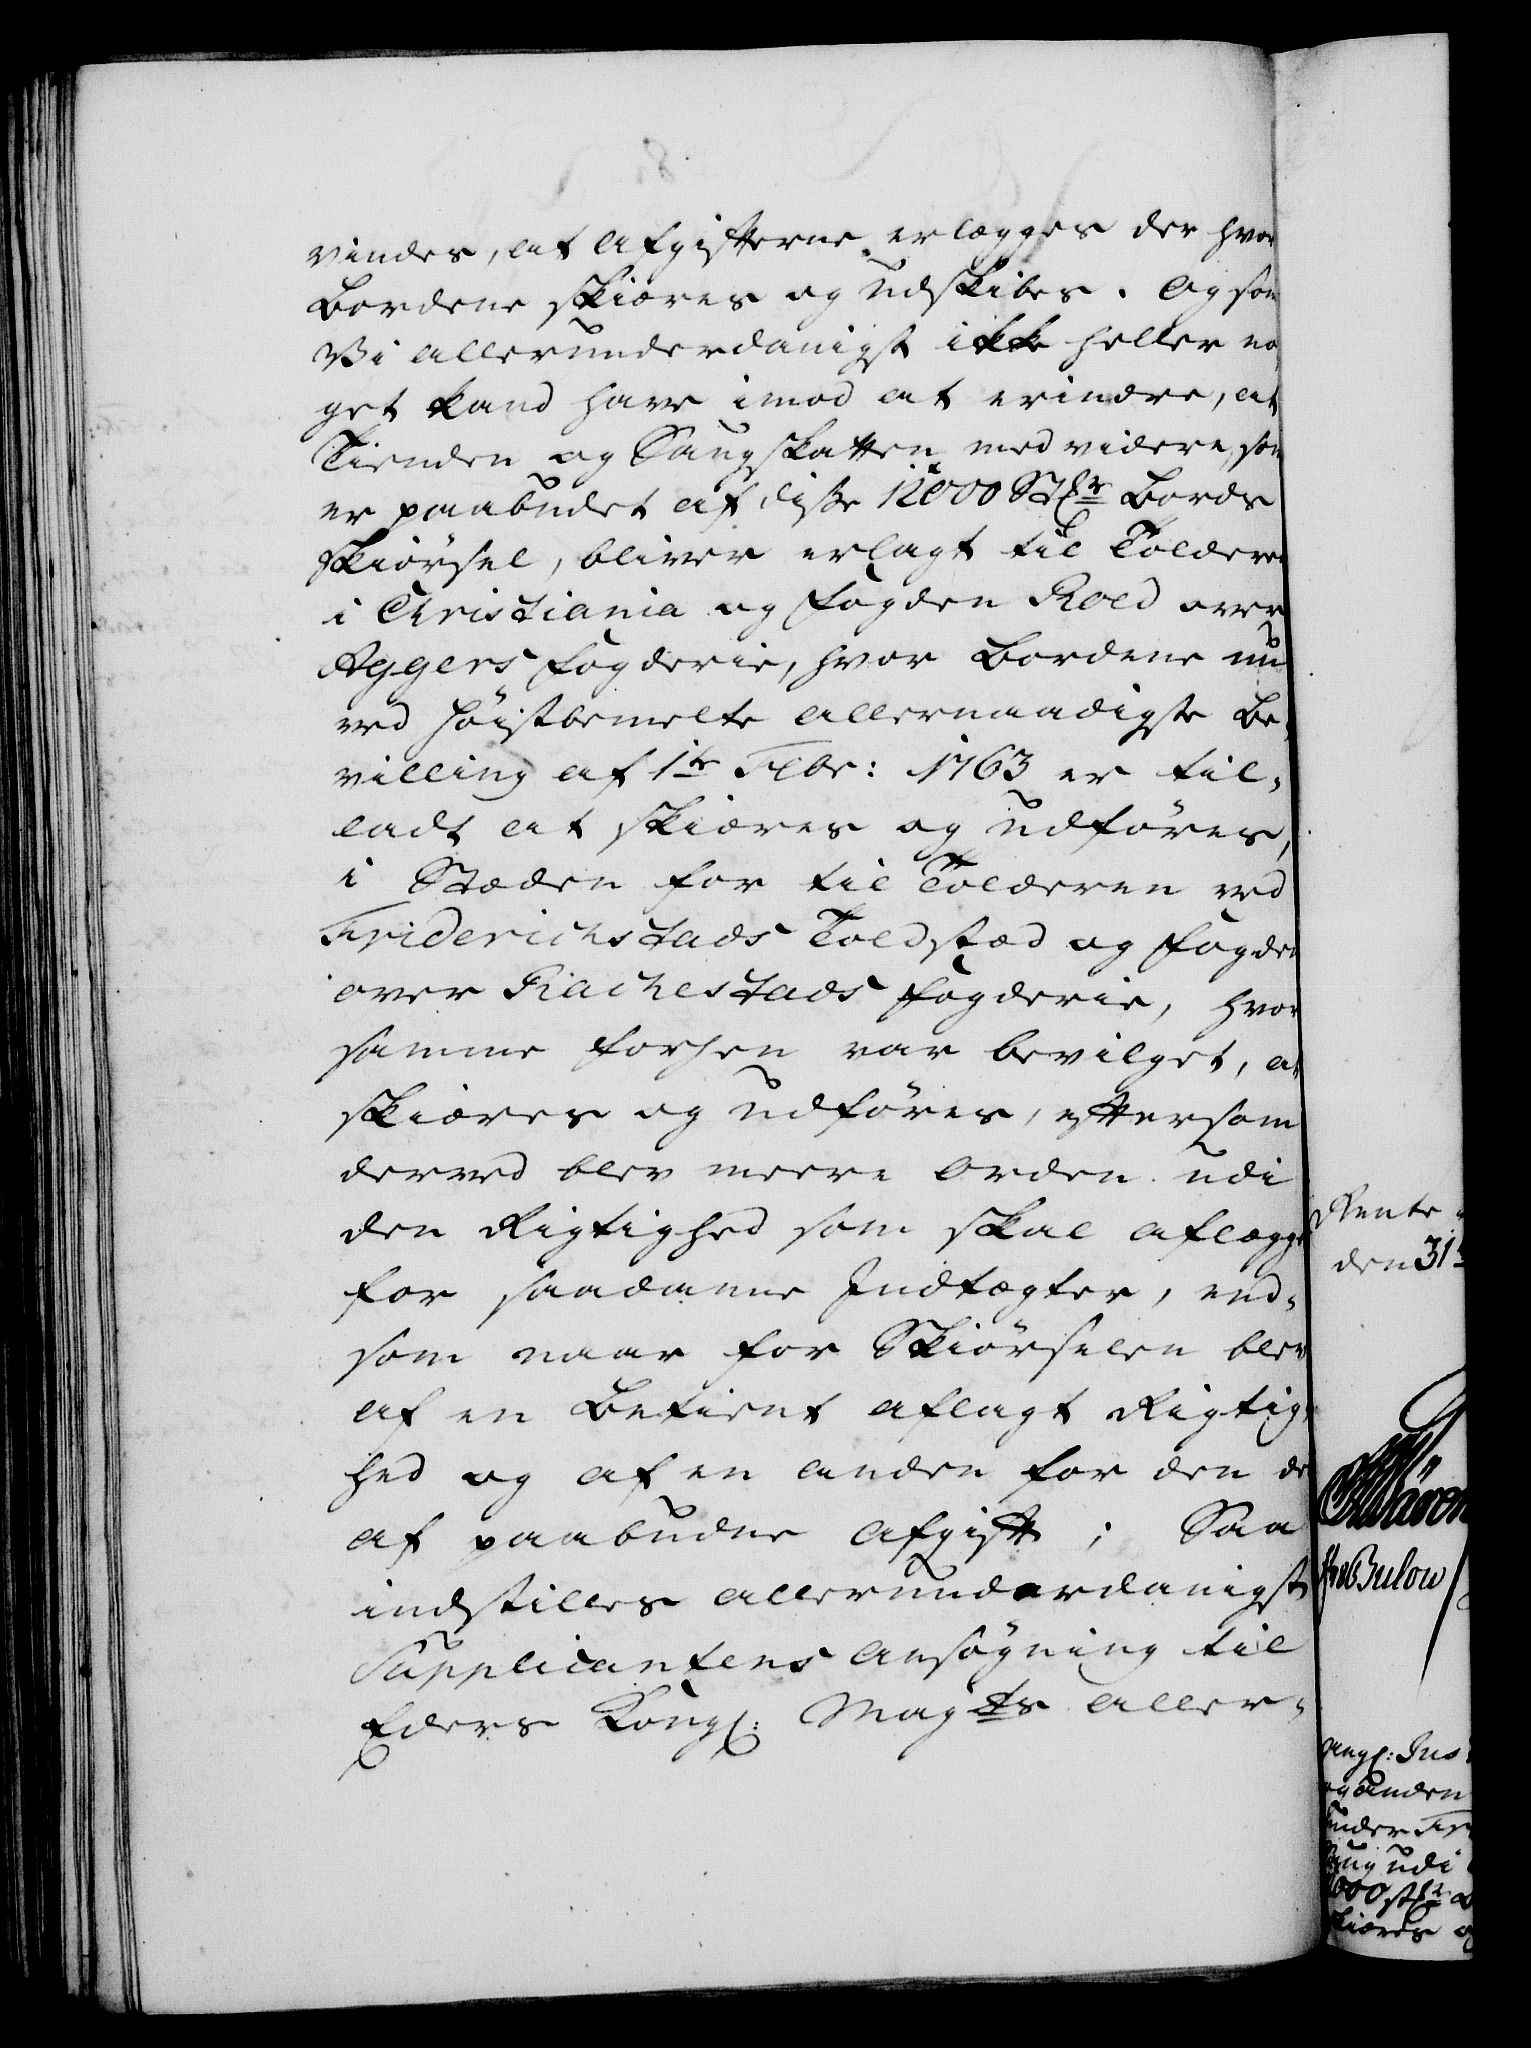 vindes, at Afgifterne erlægges der hvor
Bordene skiæres og udskibes. Og som
Vi allerunderdanigst ikke heller no,
get kand have imod at erindre, at
Tienden og Saugskatten med videre, som
er paabudet af disse 12000 Stkr Bords
Skiörsel, bliver erlagt til Tolderen
i Christiania og Fogden Roed over
Aggers Fogderie, hvor Bordene nu
ved høistbemelte allernaadigste Be,
villing af 1te Febr: 1763 er til,
ladt at skiæres og udföres,
i Stæden for til Tolderen ved
Friderichstads Toldsted og Fogden
over Rachestads Fogderie, hvor
samme forhen var bevilget, at
skiæres og udföres, eftersom
derved blev meere Orden udi
den Rigtighed som skal aflægges
for saadanne Indtægter, end,
som naar for Skiörselen blev
af en Betient aflagt Rigtig,
hed og af en anden for den der
af paabudne Afgift; Saa
indstilles allerunderdanigst
Supplicantens Ansøgning til
Eders Kongl: Mayts aller,
Rente
den 31
Bulow
ang: Jus
og anden
under Fr
Saug udi
000 stkr
skiæres og